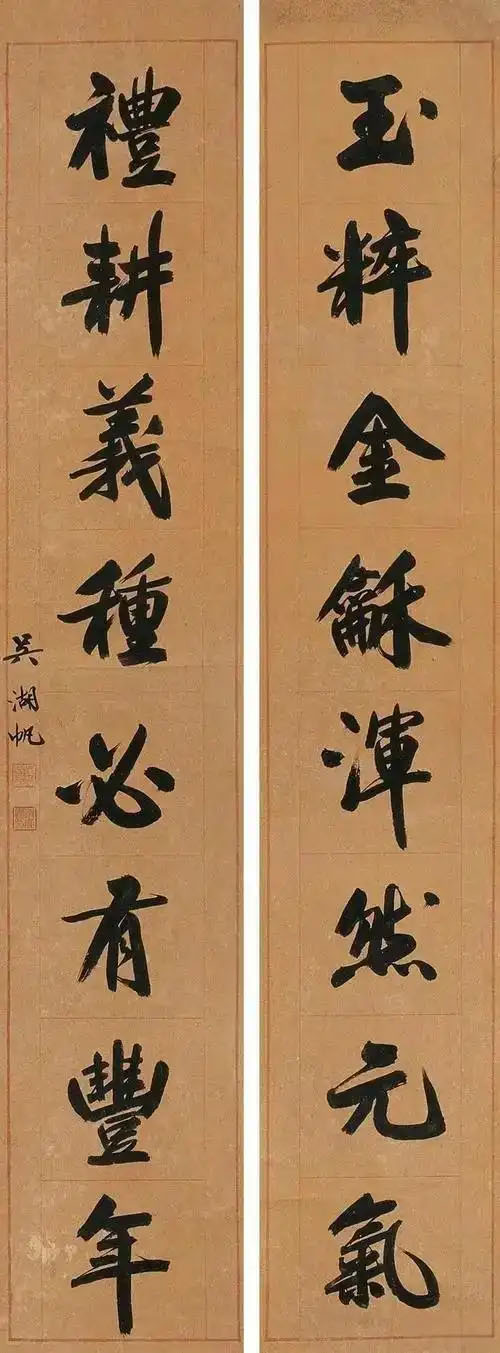 玉粹金龢渾然元氣
禮耕義種必有豐年
吳湖帆